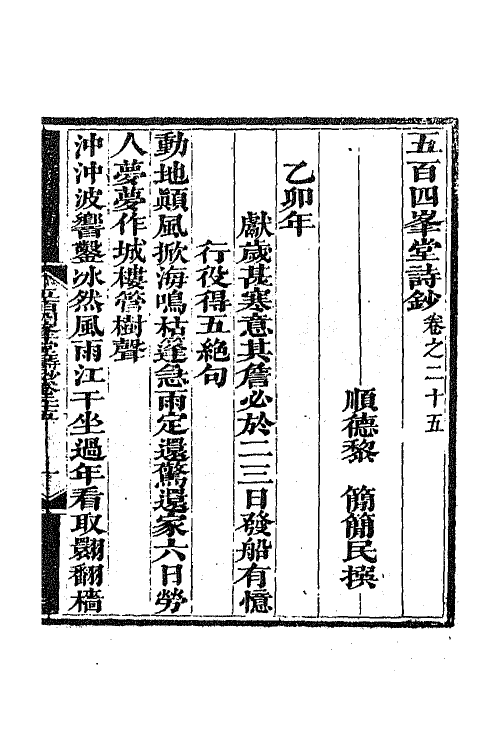 五百四峯堂詩鈔卷之二十五
順德黎　簡簡民撰
乙卯年
獻歲甚寒意其詹必於二三日發船有憶
行役得五絶句
動地顚風掀海鳴枯蓬急雨定還驚還家六日勞
人夢夢作城樓管樹聲
沖沖波響鑿冰然風雨江干坐過年看取翾翻檣
五百四峯堂詩鈔卷二十五
一